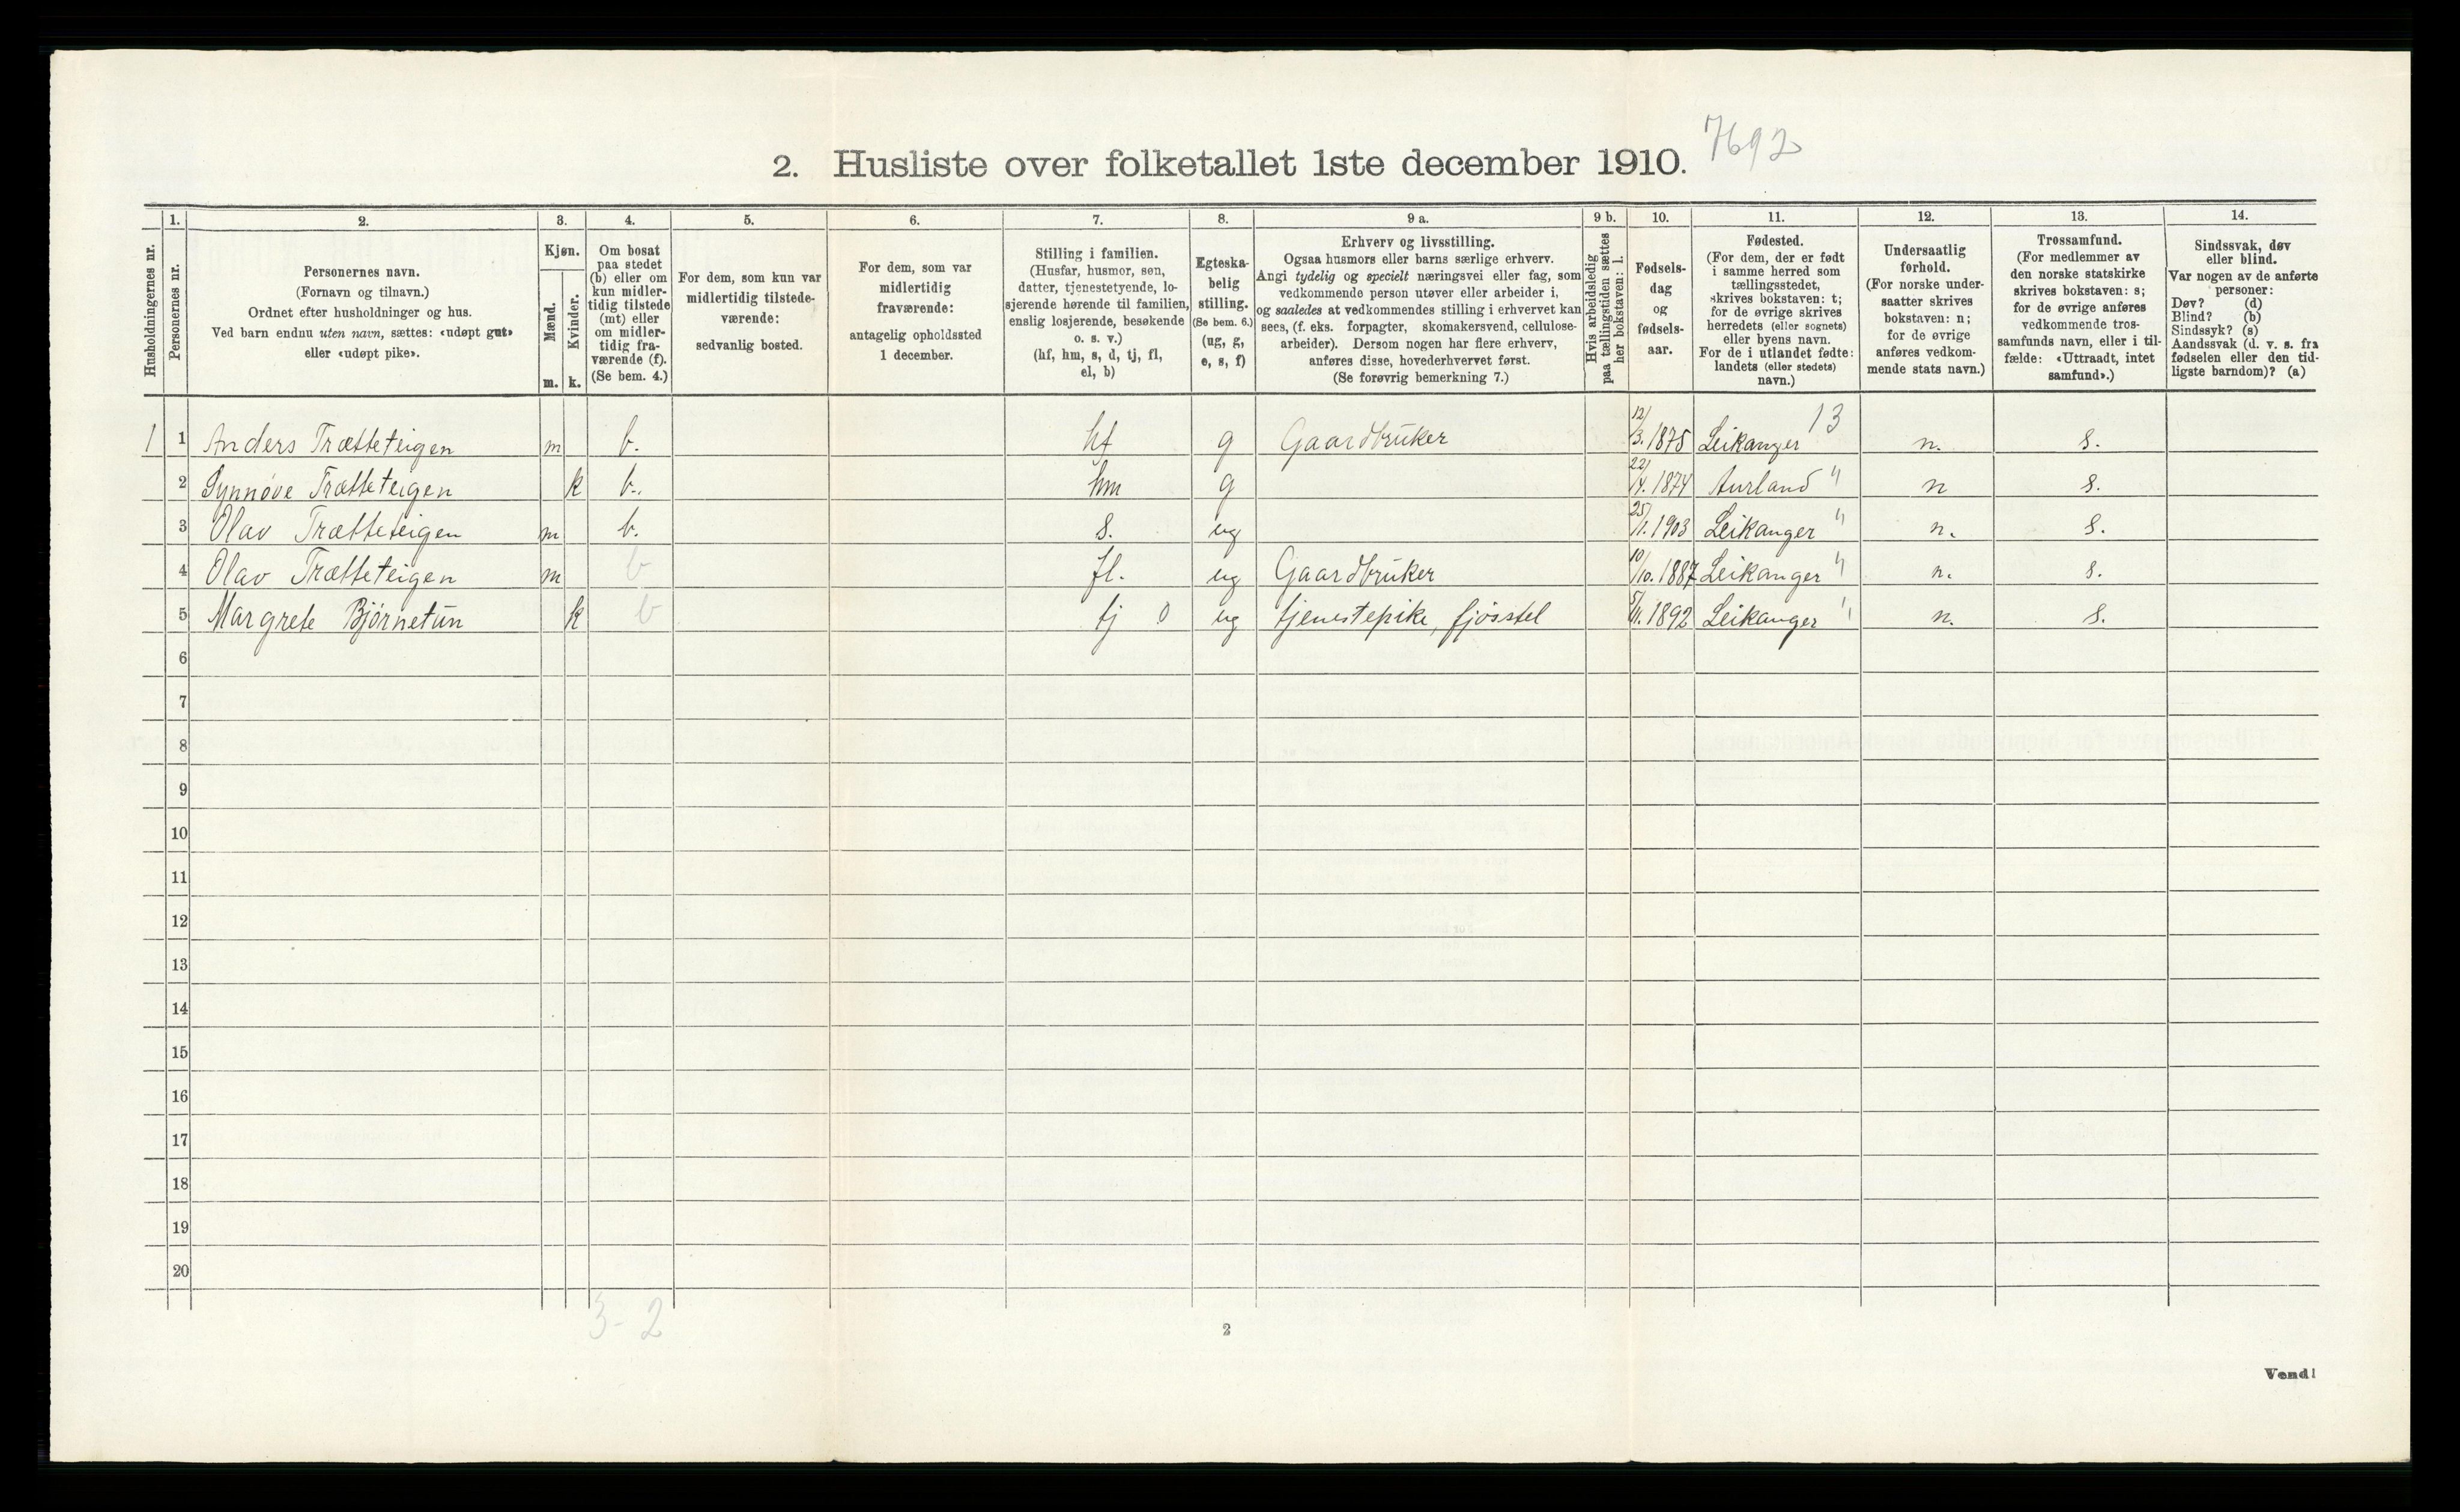 7692
2. Husliste over folketallet 1ste december 1910.
Husholdningernes nr.
1.
Personernes nr.
2.
Personernes navn.
(Fornavn og tilnavn.)
Ordnet efter husholdninger og hus.
Ved barn endnu uten navn, sættes: «udøpt gut»
eller «udøpt pike».
3.
Kjøn.
Mænd.
Kvinder.
m. k.
4.
Om bosat
paa stedet
(b) eller om
kun midler-
tidig tilstede
(mt) eller
om midler-
tidig fra-
værende (f).
(Se bem. 4.)
5.
For dem, som kun var
midlertidig tilstede-
værende:
sedvanlig bosted.
6.
For dem, som var
midlertidig
fraværende:
antagelig opholdssted
1 december.
7.
Stilling i familien.
(Husfar, husmor, søn,
datter, tjenestetyende, lo-
sjerende hørende til familien,
enslig losjerende, besøkende
o. s. v.)
(hf, hm, s, d, tj, fl,
el, b)
8.
Egteska-
belig
stilling.
(Se bem. 6.)
(ug, g,
e, s, f)
9 a.
Erhverv og livsstilling.
Ogsaa husmors eller barns særlige erhverv.
Angi tydelig og specielt næringsvei eller fag, som
vedkommende person utøver eller arbeider i,
og saaledes at vedkommendes stilling i erhvervet kan
sees, (f. eks. forpagter, skomakersvend, cellulose-
arbeider). Dersom nogen har flere erhverv,
anføres disse, hovederhvervet først.
(Se forøvrig bemerkning 7.)
9 b.
Hvis arbeidsledig
paa tællingstiden sættes
her bokstaven: l.
10.
Fødsels-
dag
og
fødsels-
aar.
11.
Fødested.
(For dem, der er født
i samme herred som
tællingsstedet,
skrives bokstaven: t;
for de øvrige skrives
herredets (eller sognets)
eller byens navn.
For de i utlandet fødte:
landets (eller stedets)
navn.)
12.
Undersaatlig
forhold.
(For norske under-
saatter skrives
bokstaven: n;
for de øvrige
anføres vedkom-
mende stats navn.)
13.
Trossamfund.
(For medlemmer av
den norske statskirke
skrives bokstaven: s;
for de øvrige anføres
vedkommende tros-
samfunds navn, eller i til-
fælde: «Uttraadt, intet
samfund».)
14.
Sindssvak, døv
eller blind.
Var nogen av de anførte
personer:
Døv? (d)
Blind? (b)
Sindssyk? (s)
Aandssvak (d. v. s. fra
fødselen eller den tid-
ligste barndom)? (a)
13
1 1 Anders Trætteteigen m b. hf g Gaardbruker 12/3. 1875 Leikanger n. s.
2 Synnöve Trætteteigen k b. hm g 22/4. 1874 Aurland " n s.
3 Olav Trætteteigen m b. s. ug 25/1. 1903 Leikanger " n. s.
4 Olav Trætteteigen m b fl. ug Gaardbruker 10/10. 1887 Leikanger " n. s.
5 Margrete Bjørnetun k b tj 0 ug tjenestepike, fjösstel 5/11. 1892 Leikanger " n. s.
6
7
8
9
10
11
12
13
14
15
16
17
18
19
20
3 - 2
2
Vend!